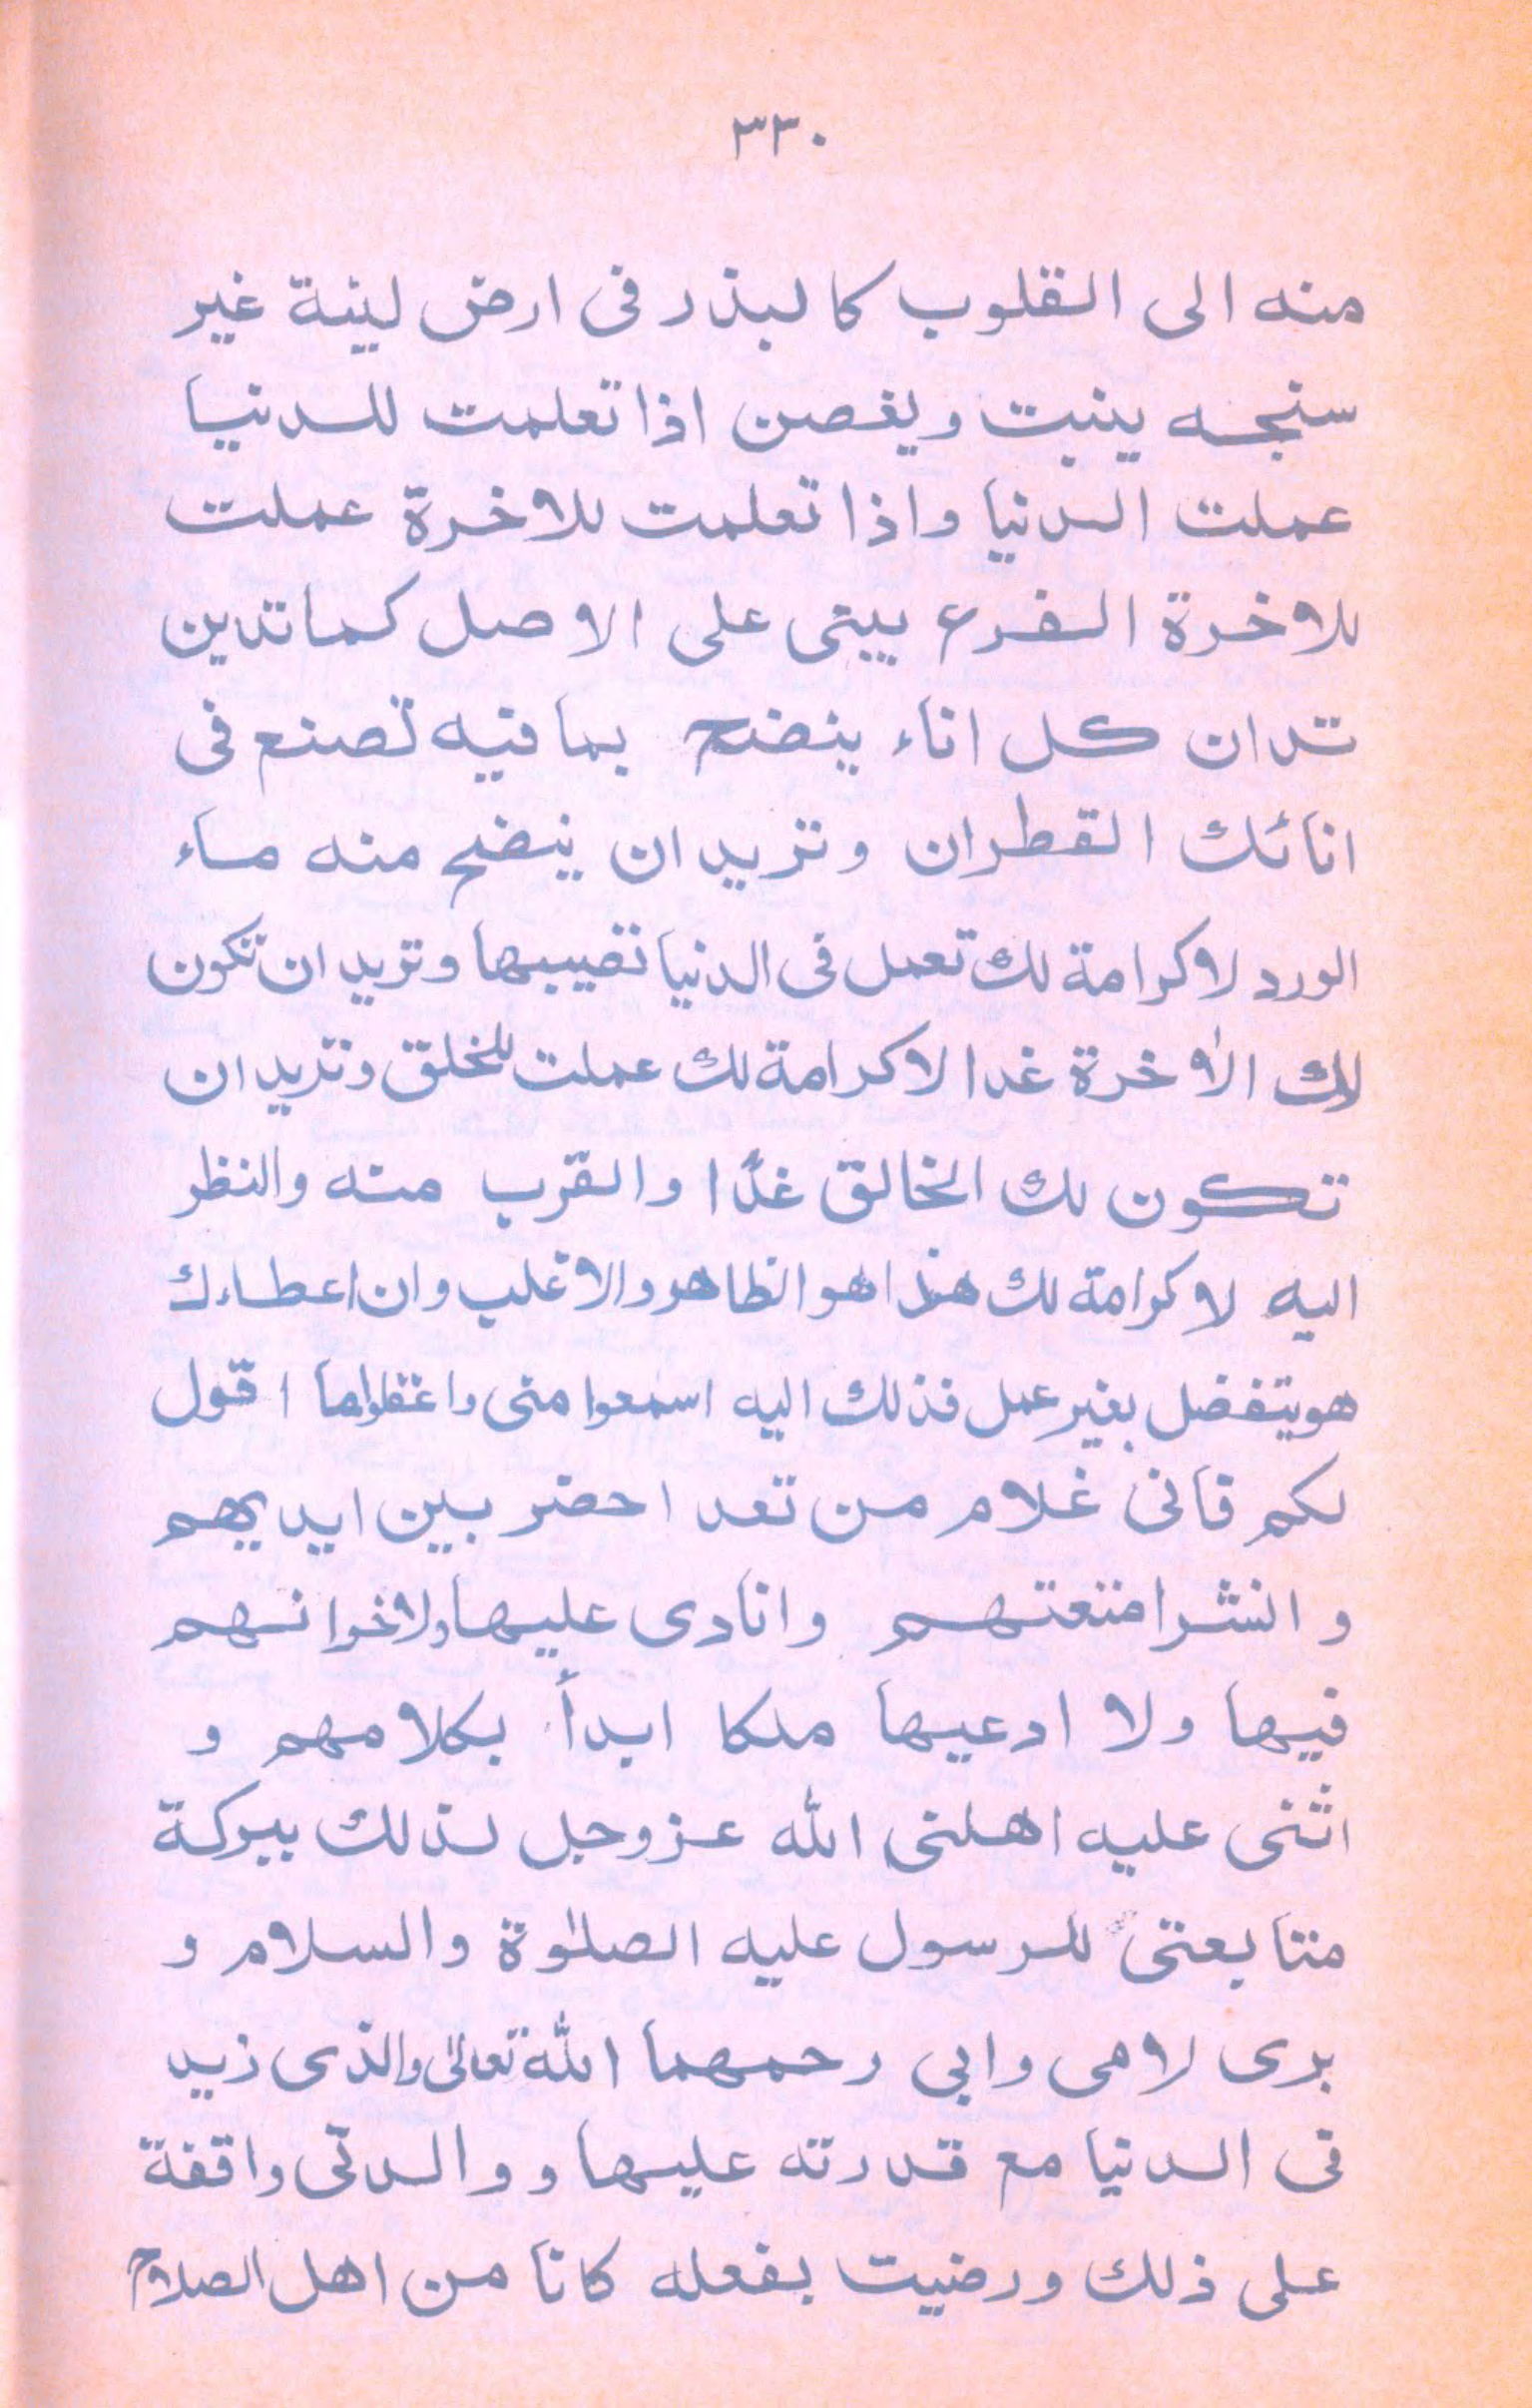 ٣٣٠
منه الى القلوب كالبذر فى ارض لينة غير
سنجه ينبت ويغصن اذا تعلمت للدنيا
عملت الدنيا واذا تعلمت للاخرة عملت
للاخرة الفرع يبتى على الاصل كما تدين
تدان كل اناء ينضح بما فيه تصنع فى
انائك القطران وتريد ان ينضح منه ماء
الورد لا كرامة لك تعمل فى الدنيا تصيبها وتريد ان تكون
لك الاخرة غدا لا كرامة لك عملت للخلق وتريد ان
تكون لك الخالق غدًا والقرب منه والنظر
اليه لا كرامة لك هذا هو الظاهر والاغلب وان اعطاءك
هو يتفضل بغير عمل فذلك اليه اسمعوا منى واعقلوا ما اقول
لكم فانى غلام من تعد احضر بين ايديهم
و انشر امتعتهم وانادى عليها ولا اخوانهم
فيها ولا ادعيها ملكا ابدأ بكلامهم و
اثنى عليه اهلنى الله عزوجل لذلك ببركة
متابعتى للرسول عليه الصلوة والسلام و
برى لامى وابى رحمهما الله تعالى والذى زيد
فى الدنيا مع قدرته عليها و والدتى واقفة
على ذلك ورضيت بفعله كانا من اهل الصلاح